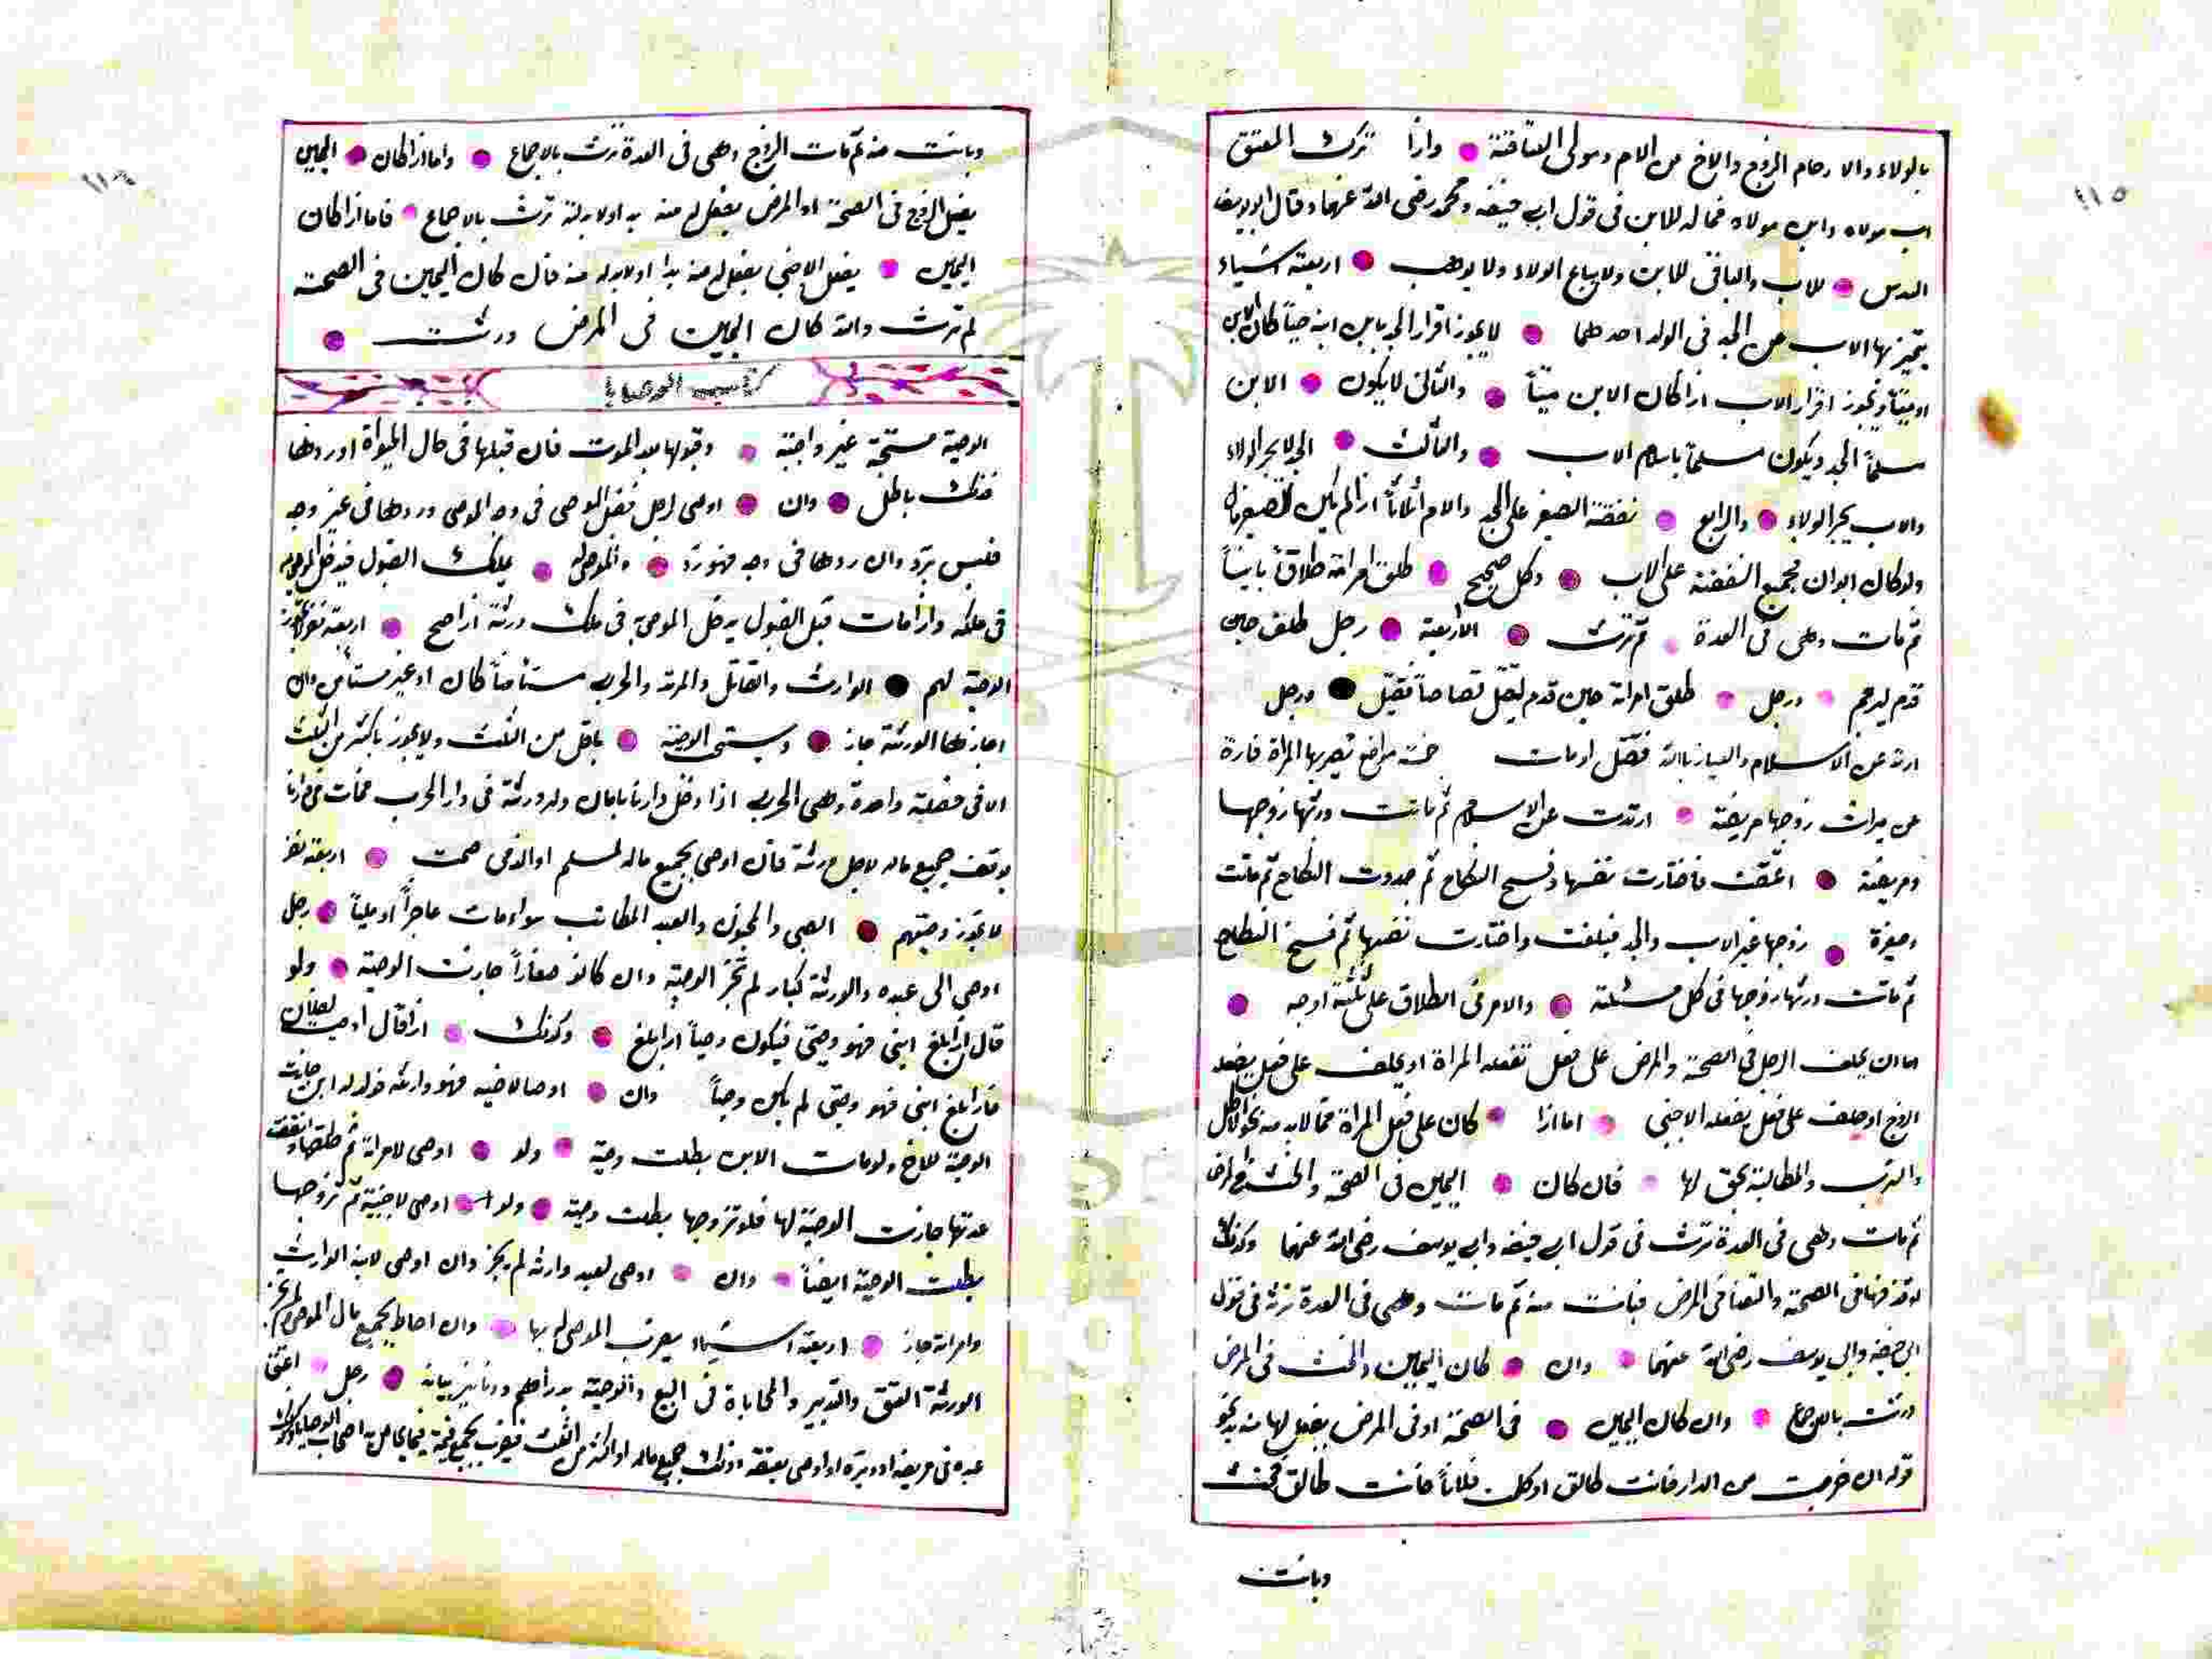 ١١٥
بالولاء والارحام الزوج والاخ من الام ومولى العتاقة واذا ترك المعتق
اب مولاه وابن مولاه فماله للابن فى قول ابى حنيفة ومحمد رضى الله عنهما وقال ابو يوسف
السدس للاب والباقى للابن ولا يباع الولاء ولا يوهب اربعة اشياء
يتميز بها الاب عن الجد فى الولد احدهما لا يجوز اقرار الجد بابن ابنه حياً كان الابن
او ميتاً ويجوز اقرار الاب اذا كان الابن ميتاً والثانى لا يكون الابن
مسلماً الجد ويكون مسلماً باسلام الاب والثالث الجد لا يجر الولاء
والاب يجر الولاء والرابع نفقة الصغير على الجد والام اثلاثاً اذا لم يكن للصغير مال
ولو كان ابوان فجميع النفقة على الاب وكل صحيح طلق امراته طلاقاً بايناً
ثم مات وهى فى العدة لم ترث الا اربعة رجل طلق حين
قدم ليرجم ورجل طلق امراته حين قدم ليقتل قصاصاً فقتل ورجل
ارتد عن الاسلام والعياذ بالله فقتل او مات خمسة مواضع تصير بها المراة فارة
عن ميراث زوجها مريضة ارتدت عن الاسلام ثم ماتت ورثها زوجها
ومريضة اعتقت فاختارت نفسها وفسخ النكاح ثم جددت النكاح ثم ماتت
وصغيرة زوجها غير الاب والجد فبلغت واختارت نفسها ثم فسخ النكاح
ثم ماتت ورثها زوجها فى كل مسئلة والامر فى الطلاق على ثلثة اوجه
اما ان يحلف الرجل فى الصحة والمرض على فعل تفعله المراة او يحلف على فعل يفعله
الزوج او حلف على فعل يفعله الاجنبى اما اذا كان على فعل المراة مما لابد منه نحو الاكل
والشرب والمطالبة بحق لها فان كان اليمين فى الصحة والحنث فى المرض
ثم مات وهى فى العدة ترث فى قول ابى حنيفة وابى يوسف رضى الله عنهما وكذلك
لو قذفها فى الصحة والتعنا فى المرض فبانت منه ثم مات وهى فى العدة ترثه فى قول
ابى حنيفة وابى يوسف رضى الله عنهما وان كان اليمين والحنث فى المرض
ورثت بالاجماع وان كان اليمين فى الصحة او فى المرض بفعل لها منه بد نحو
قوله ان خرجت من الدار فانت طالق او كلمت فلاناً فانت طالق فحنث
وبانت
١١٦
وبانت منه ثم مات الزوج وهى فى العدة ترث بالاجماع واما اذا كان اليمين
بفعل الزوج فى الصحة او المرض بفعل له منه بد اولا بد له ترث بالاجماع فاما اذا كان
اليمين بفعل الاجنبى بفعل له منه بد او لابد له منه فان كان اليمين فى الصحة
لم ترث وان كان اليمين فى المرض ورثت
كتاب الوصايا
الوصية مستحبة غير واجبة وقبولها بعد الموت فان قبلها فى حال الحيوة او ردها
فذلك باطل وان اوصى لرجل فقبل الموصى فى وجه الموصى وردها فى غير وجه
فليس برد وان ردها فى وجه فهو رد والموصى يملك القبول فيدخل الموصى به
فى ملكه واذا مات قبل القبول يدخل الموصى به فى ملك ورثته اذا صح اربعة نفر لا يجوز
الوصية لهم الوارث والقاتل والمرتد والحربى مستأمناً كان او غير مستأمن وان
اجازها الورثة جاز ويستحب الوصية باقل من الثلث ولا يجوز باكثر من الثلث
الا فى خصلة واحدة وهى الحربى اذا دخل دارنا بامان وله ورثة فى دار الحرب فمات فى دارنا
يوقف جميع ماله لاجل ورثته فان اوصى بجميع ماله لمسلم او الذمى صحت اربعة نفر
لا تجوز وصيتهم الصبى والمجنون والعبد المكاتب سواء مات عاجزاً او ملياً رجل
اوصى الى عبده والورثة كبار لم تجز الوصية وان كانوا صغاراً جازت الوصية ولو
قال اذا بلغ ابنى فهو وصيى فيكون وصياً اذا بلغ وكذلك اذا قال اوصيت لفلان
فاذا بلغ ابنى فهو وصيى لم يكن وصياً وان اوصا لاخيه فهو وارثه فولد له ابن جازت
الوصية للاخ ولو مات الابن بطلت وصيته ولو اوصى لامراته ثم طلقها وانقضت
عدتها جازت الوصية لها فلو تزوجها بطلت وصيته ولو اوصى لاجنبية ثم تزوجها
بطلت الوصية ايضاً وان اوصى لعبد وارثه لم يجز وان اوصى لابنه الوارث
وامراته جاز اربعة اشياء يضرب الموصى له بها وان احاط بجميع مال الموصى لم يجز
الورثة العتق والتدبير والمحاباة فى البيع والوصية بدراهم ودنانير بيانه رجل اعتق
عبده فى مرضه او دبره او اوصى بعتقه وذلك جميع ماله او اكثر من الثلث فيضرب بجميع قيمته فيما يحاص به اصحاب الوصايا وكذلك